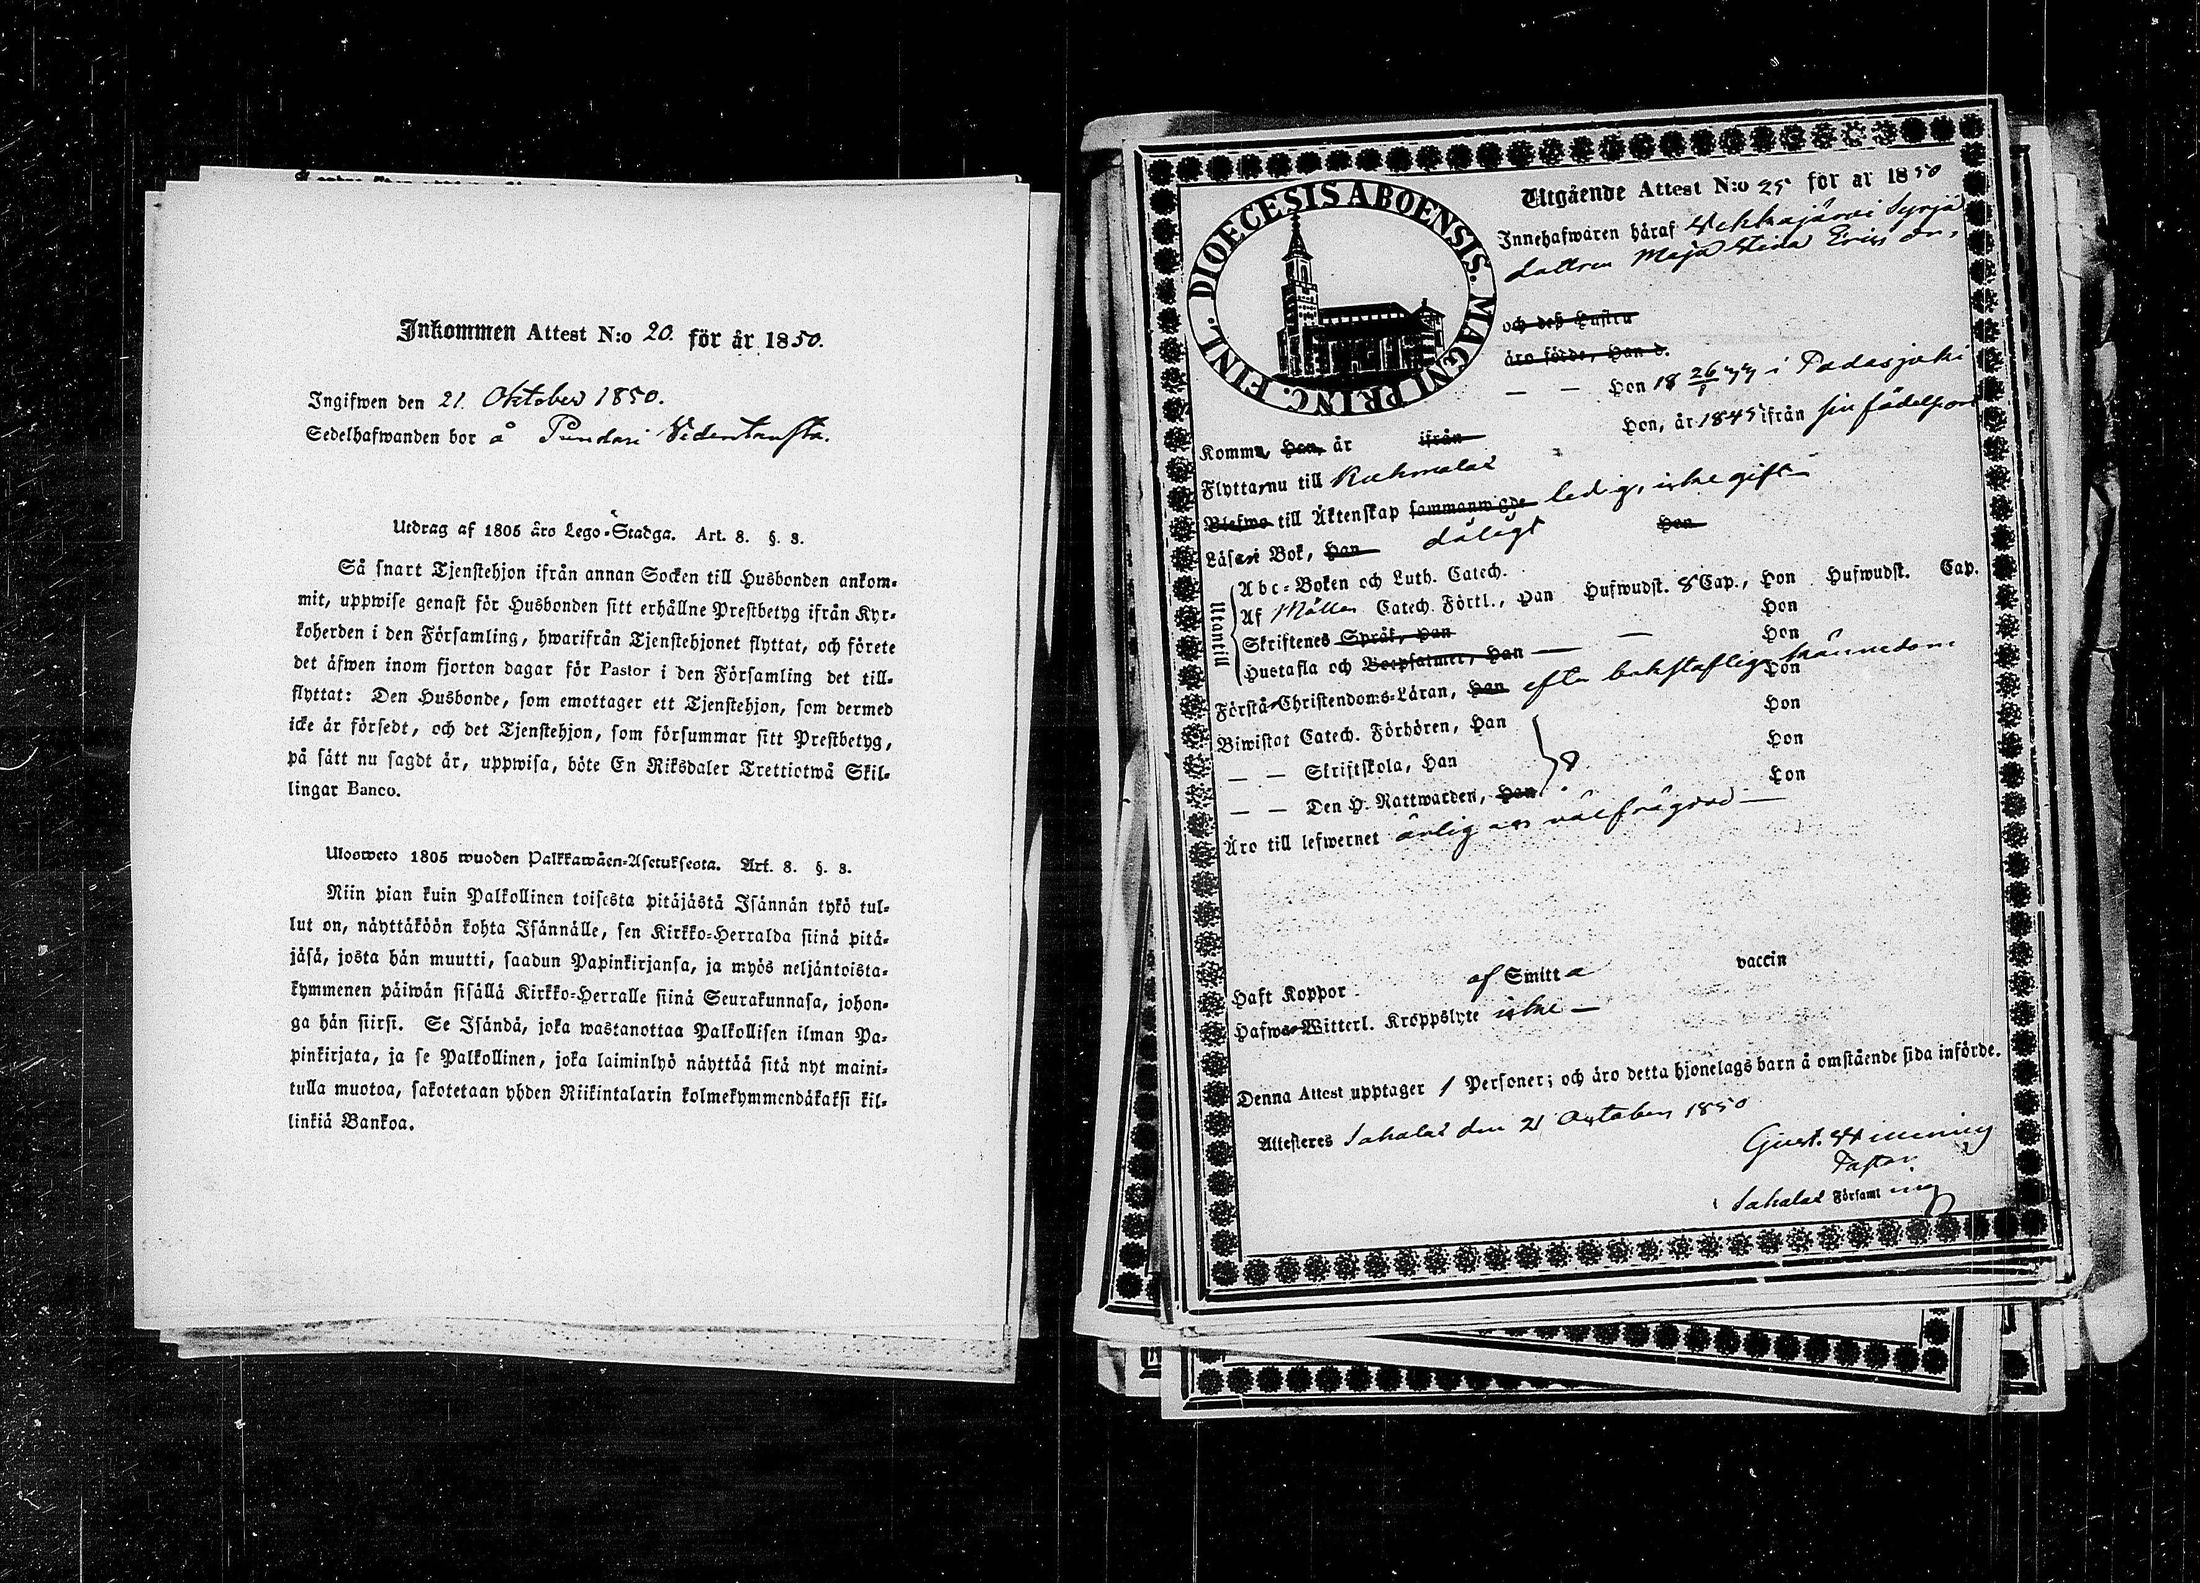 Inkommen Attest N:o 20. för år 1850.
Ingifwen den 21. Oktober 1850.
Sedelhafwanden bor å Pundari
Utdrag af 1805 års Lego-Stadga. Art. 8. §. 8.
Så snart Tjenstehjon ifrån annan Socken till Husbonden ankom-
mit, uppwise genast för Husbonden sitt erhållne Prestbetyg ifrån Kyr-
koherden i den Församling, hwarifrån Tjenstehjonet flyttat, och förete
det äfwen inom fjorton dagar för Pastor i den Församling det till-
flyttat: Den Husbonde, som emottager ett Tjenstehjon, som dermed
icke är försedt, och det Tjenstehjon, som försummar sitt Prestbetyg,
på sätt nu sagdt är, uppwisa, böte En Riksdaler Trettiotwå Skil-
lingar Banco.
Ulosweto 1805 wuoden Palkkawäen-Asetuksesta. Art. 8. §. 8.
Niin pian kuin Palkollinen toisesta pitäjästä Isännän tykö tul-
lut on, näyttäköön kohta Isännälle, sen Kirkko-Herralda siinä pitä-
jäsä, josta hän muutti, saadun Papinkirjansa, ja myös neljäntoista-
kymmenen päiwän sisällä Kirkko-Herralle siinä Seurakunnasa, johon-
ga hän siirsi. Se Isändä, joka wastanottaa Palkollisen ilman Pa-
pinkirjata, ja se Palkollinen, joka laiminlyö näyttää sitä nyt maini-
tulla muotoa, sakotetaan yhden Riikintalarin kolmekymmendäkaksi kil-
linkiä Bankoa.
DIOECESIS ABOENSIS. MAGNI PRINC. FINL.
Utgående Attest N:o 25 för år 1850
Innehafwaren häraf Wehkajärvi Syrjä
dottren Maja Stina Ericsdr.
och deß Hustru
äro födde, Han d.
— — Hon 18 26/1 i Padasjoki
Hon, år 1845 ifrån sin födelseort
Komma, Han, år ifrån
Flytta, nu till Kuhmalax
Blefwo till Äktenskap sammanwigde ledig, icke gift
Läsa i Bok, Han dåligt Hon
Utantill
Abc-Boken och Luth. Catech.
Af Möllers Catech. Förkl., Han Hufwudst. 8 Cap., Hon Hufwudst. Cap.
Skriftenes Språk, Han Hon
Hustafla och Botpsalmer, Han — — Hon
Förstå Christendoms-Läran, Han efter bokstaflig kännedom Hon
Biwistat Catech. Förhören, Han Hon
— — Skriftskola, Han Hon
— — Den H. Nattwarden, Han Hon
Äro till lefwernet ärlig och välfrägdad —
Haft Koppor af Smitta vaccin
Hafwa Witterl. Kroppslyte icke —
Denna Attest upptager 1 Personer; och äro detta hjonelags barn å omstående sida införde.
Attesteres Sahalax den 21 October 1850
Gust. Hemming
Pastor
i Sahalax Församling